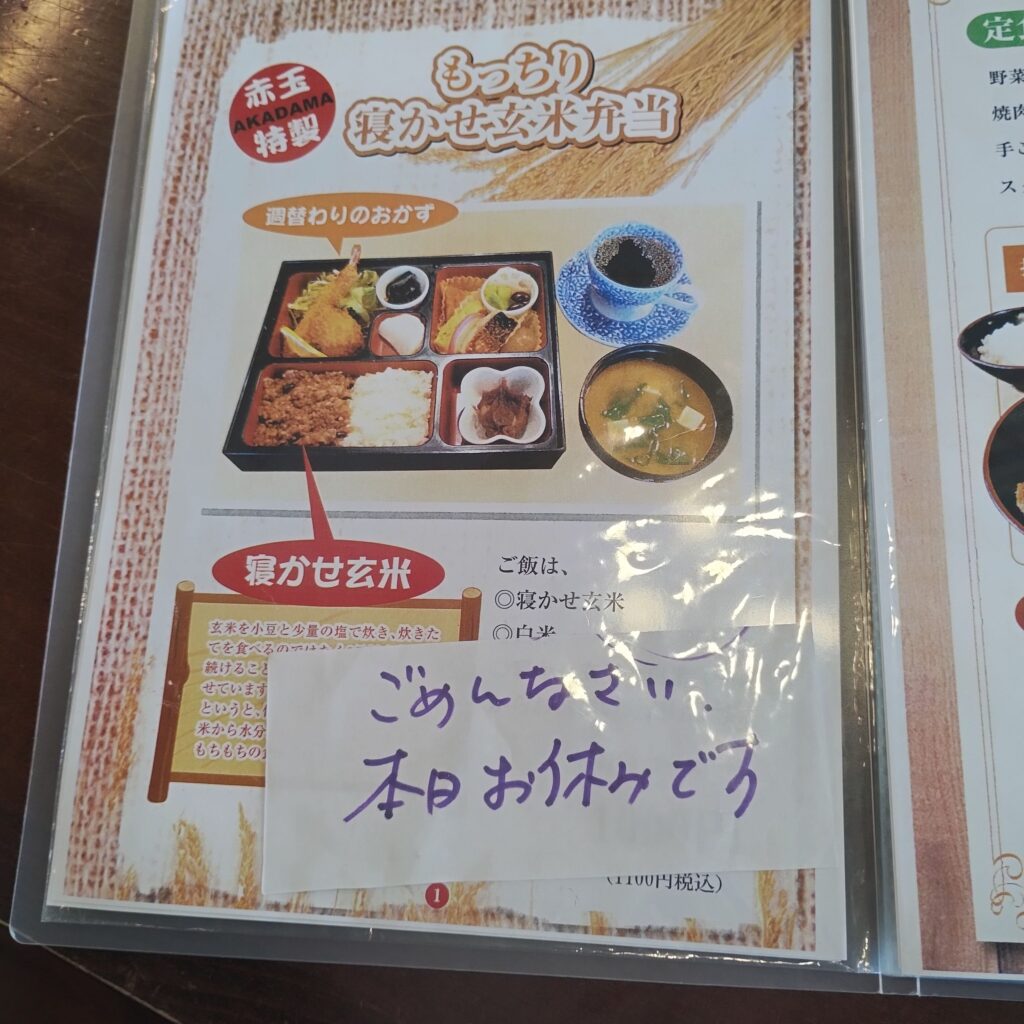 赤玉
AKADAMA
特製
もっちり
寝かせ玄米弁当
週替わりのおかず
寝かせ玄米
玄米を小豆と少量の塩で炊き、炊きた
てを食べるのではなく
続けること
せています
というと、
米から水分
もちもちの
ご飯は、
◎寝かせ玄米
◎白米
ごめんなさい.
本日お休みです
(1100円税込)
1
定食
野菜
焼肉
手ご
ス